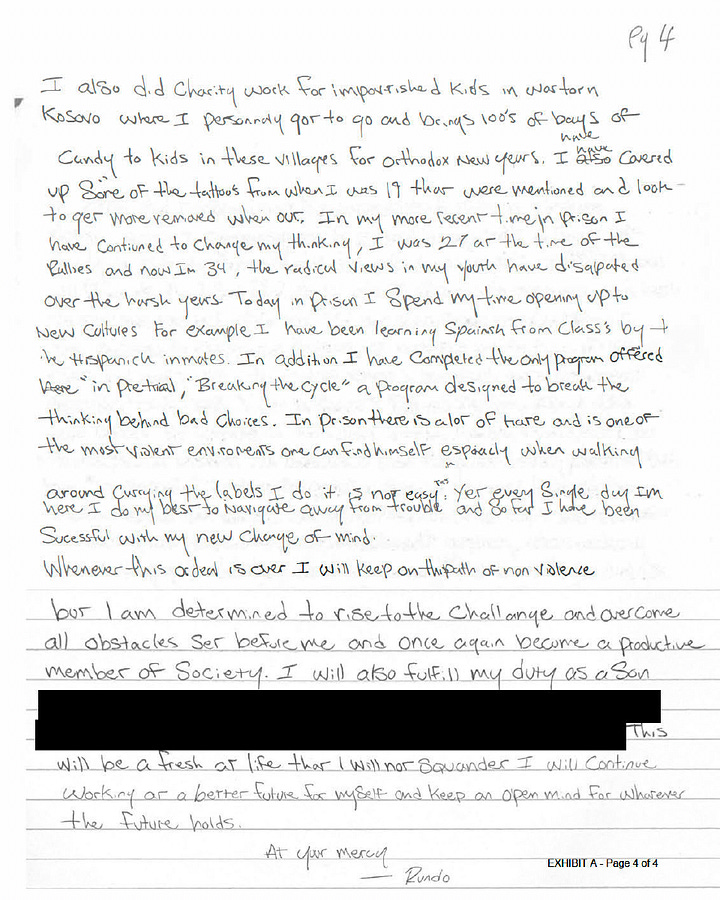 Pg 4
I also did Charity work for impovrished kids in wartorn
Kosovo where I personnaly got to go and brings 100's of bays of
have
Candy to kids in these villages for orthodox New years. I have Covered
up Some of the tattoos from when I was 19 that were mentioned and look
to get more removed when out. In my more recent time in prison I
have Contiuned to Change my thinking, I was 27 at the time of the
Rallies and now Im 34, the radical views in my youth have disapated
over the harsh years. Today in prison I Spend my time opening up to
New Cultures For example I have been learning Spainsh from Class's by t
he Hispanich inmates. In addition I have Completed the only program offered
here "in Pretrial," "Breaking the Cycle" a program designed to break the
thinking behind bad Choices. In prison there is a lot of hate and is one of
the most violent enviroments one can find himself especialy when walking
around Carrying the labels I do it is not easy. Yet every Single day Im
here I do my best to Navigate away from trouble and So far I have been
Sucessful with my new Change of mind.
Whenever this ordeal is over I will keep on this path of non violence
but I am determined to rise to the Challange and overcome
all obstacles Set before me and once again become a productive
member of Society. I will also fulfill my duty as a Son
This
will be a fresh at life that I will not Squander I will Continue
working at a better future for myself and keep an open mind for whatever
the future holds.
At your mercy
— Rundo
EXHIBIT A - Page 4 of 4